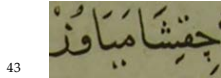 43 جِقِشَامَيَاوُزْ